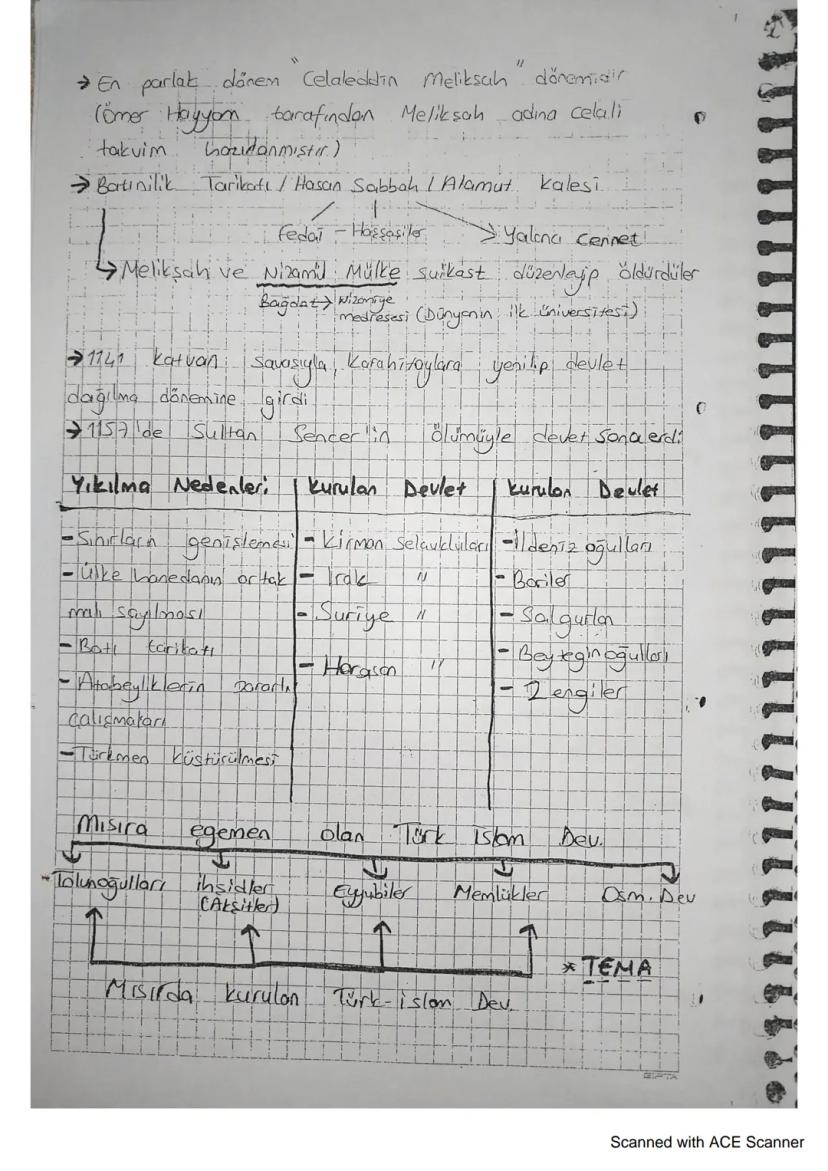 → En parlak dönem "Celaleddin Melikşah" dönemidir
(Ömer Hayyam tarafından Melikşah adına celali
takvim hazırlanmıştır.)
→ Batınilik Tarikatı / Hasan Sabbah / Alamut kalesi
Fedai - Haşşaşiler → Yalancı cennet
↳ Melikşah ve Nizamül Mülke suikast düzenleyip öldürdüler
Bağdat → Nizamiye
medresesi (Dünyanın ilk üniversitesi)
→ 1141 katvan savaşıyla, Karahitaylara yenilip devlet
dağılma dönemine girdi
→ 1157'de Sultan Sencer'in ölümüyle devet sona erdi
Yıkılma Nedenleri | Kurulan Devlet | Kurulan Devlet
- Sınırların genişlemesi - Kirman Selçukluları - İldeniz oğulları
- Ülke hanedanın ortak - Irak " - Böriler
malı sayılması - Suriye " - Salgurlar
- Batı tarikatı - Horasan " - Beyteginoğulları
- Atabeyliklerin zararlı - Zengiler
çalışmaları
- Türkmen küstürülmesi
Mısıra egemen olan Türk islam Dev.
Tolunoğulları ihşidler Eyyubiler Memlükler Osm. Dev
(Akşitler)
* TEMA
Mısırda kurulan Türk-islam Dev.
Scanned with ACE Scanner